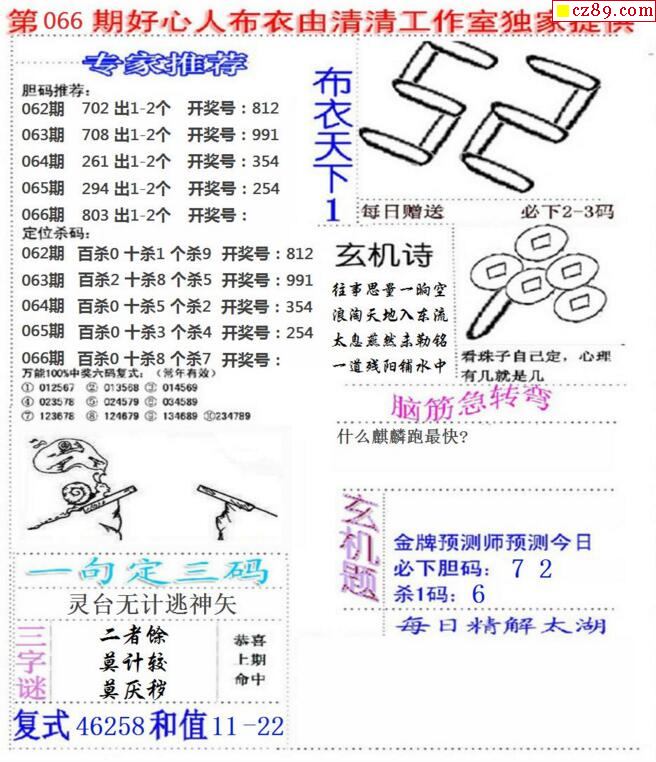 第066期好心人布衣由清清工作室独家提供
cz89.com
专家推荐
胆码推荐：
062期 702出1-2个 开奖号：812
063期 708出1-2个 开奖号：991
064期 261出1-2个 开奖号：354
065期 294出1-2个 开奖号：254
066期 803出1-2个 开奖号：
定位杀码：
062期 百杀0 十杀1 个杀9 开奖号：812
063期 百杀2 十杀8 个杀5 开奖号：991
064期 百杀0 十杀5 个杀2 开奖号：354
065期 百杀0 十杀3 个杀4 开奖号：254
066期 百杀0 十杀8 个杀7 开奖号：
万能100%中奖六码复式：（常年有效）
① 012567 ② 013568 ③ 014569
④ 023578 ⑤ 024579 ⑥ 034589
⑦ 123678 ⑧ 124679 ⑨ 134689 ⑩234789
布衣天下1
52
每日赠送 必下2-3码
玄机诗
往事思量一晌空
浪淘天地入东流
太息燕然未勒铭
一道残阳铺水中
看珠子自己定，心理
有几就是几
脑筋急转弯
什么麒麟跑最快?
玄机题
金牌预测师预测今日
必下胆码：7 2
杀1码：6
每日精解太湖
一句定三码
灵台无计逃神矢
三字谜
二者馀
莫计较
莫厌秽
恭喜
上期
命中
复式46258和值11-22